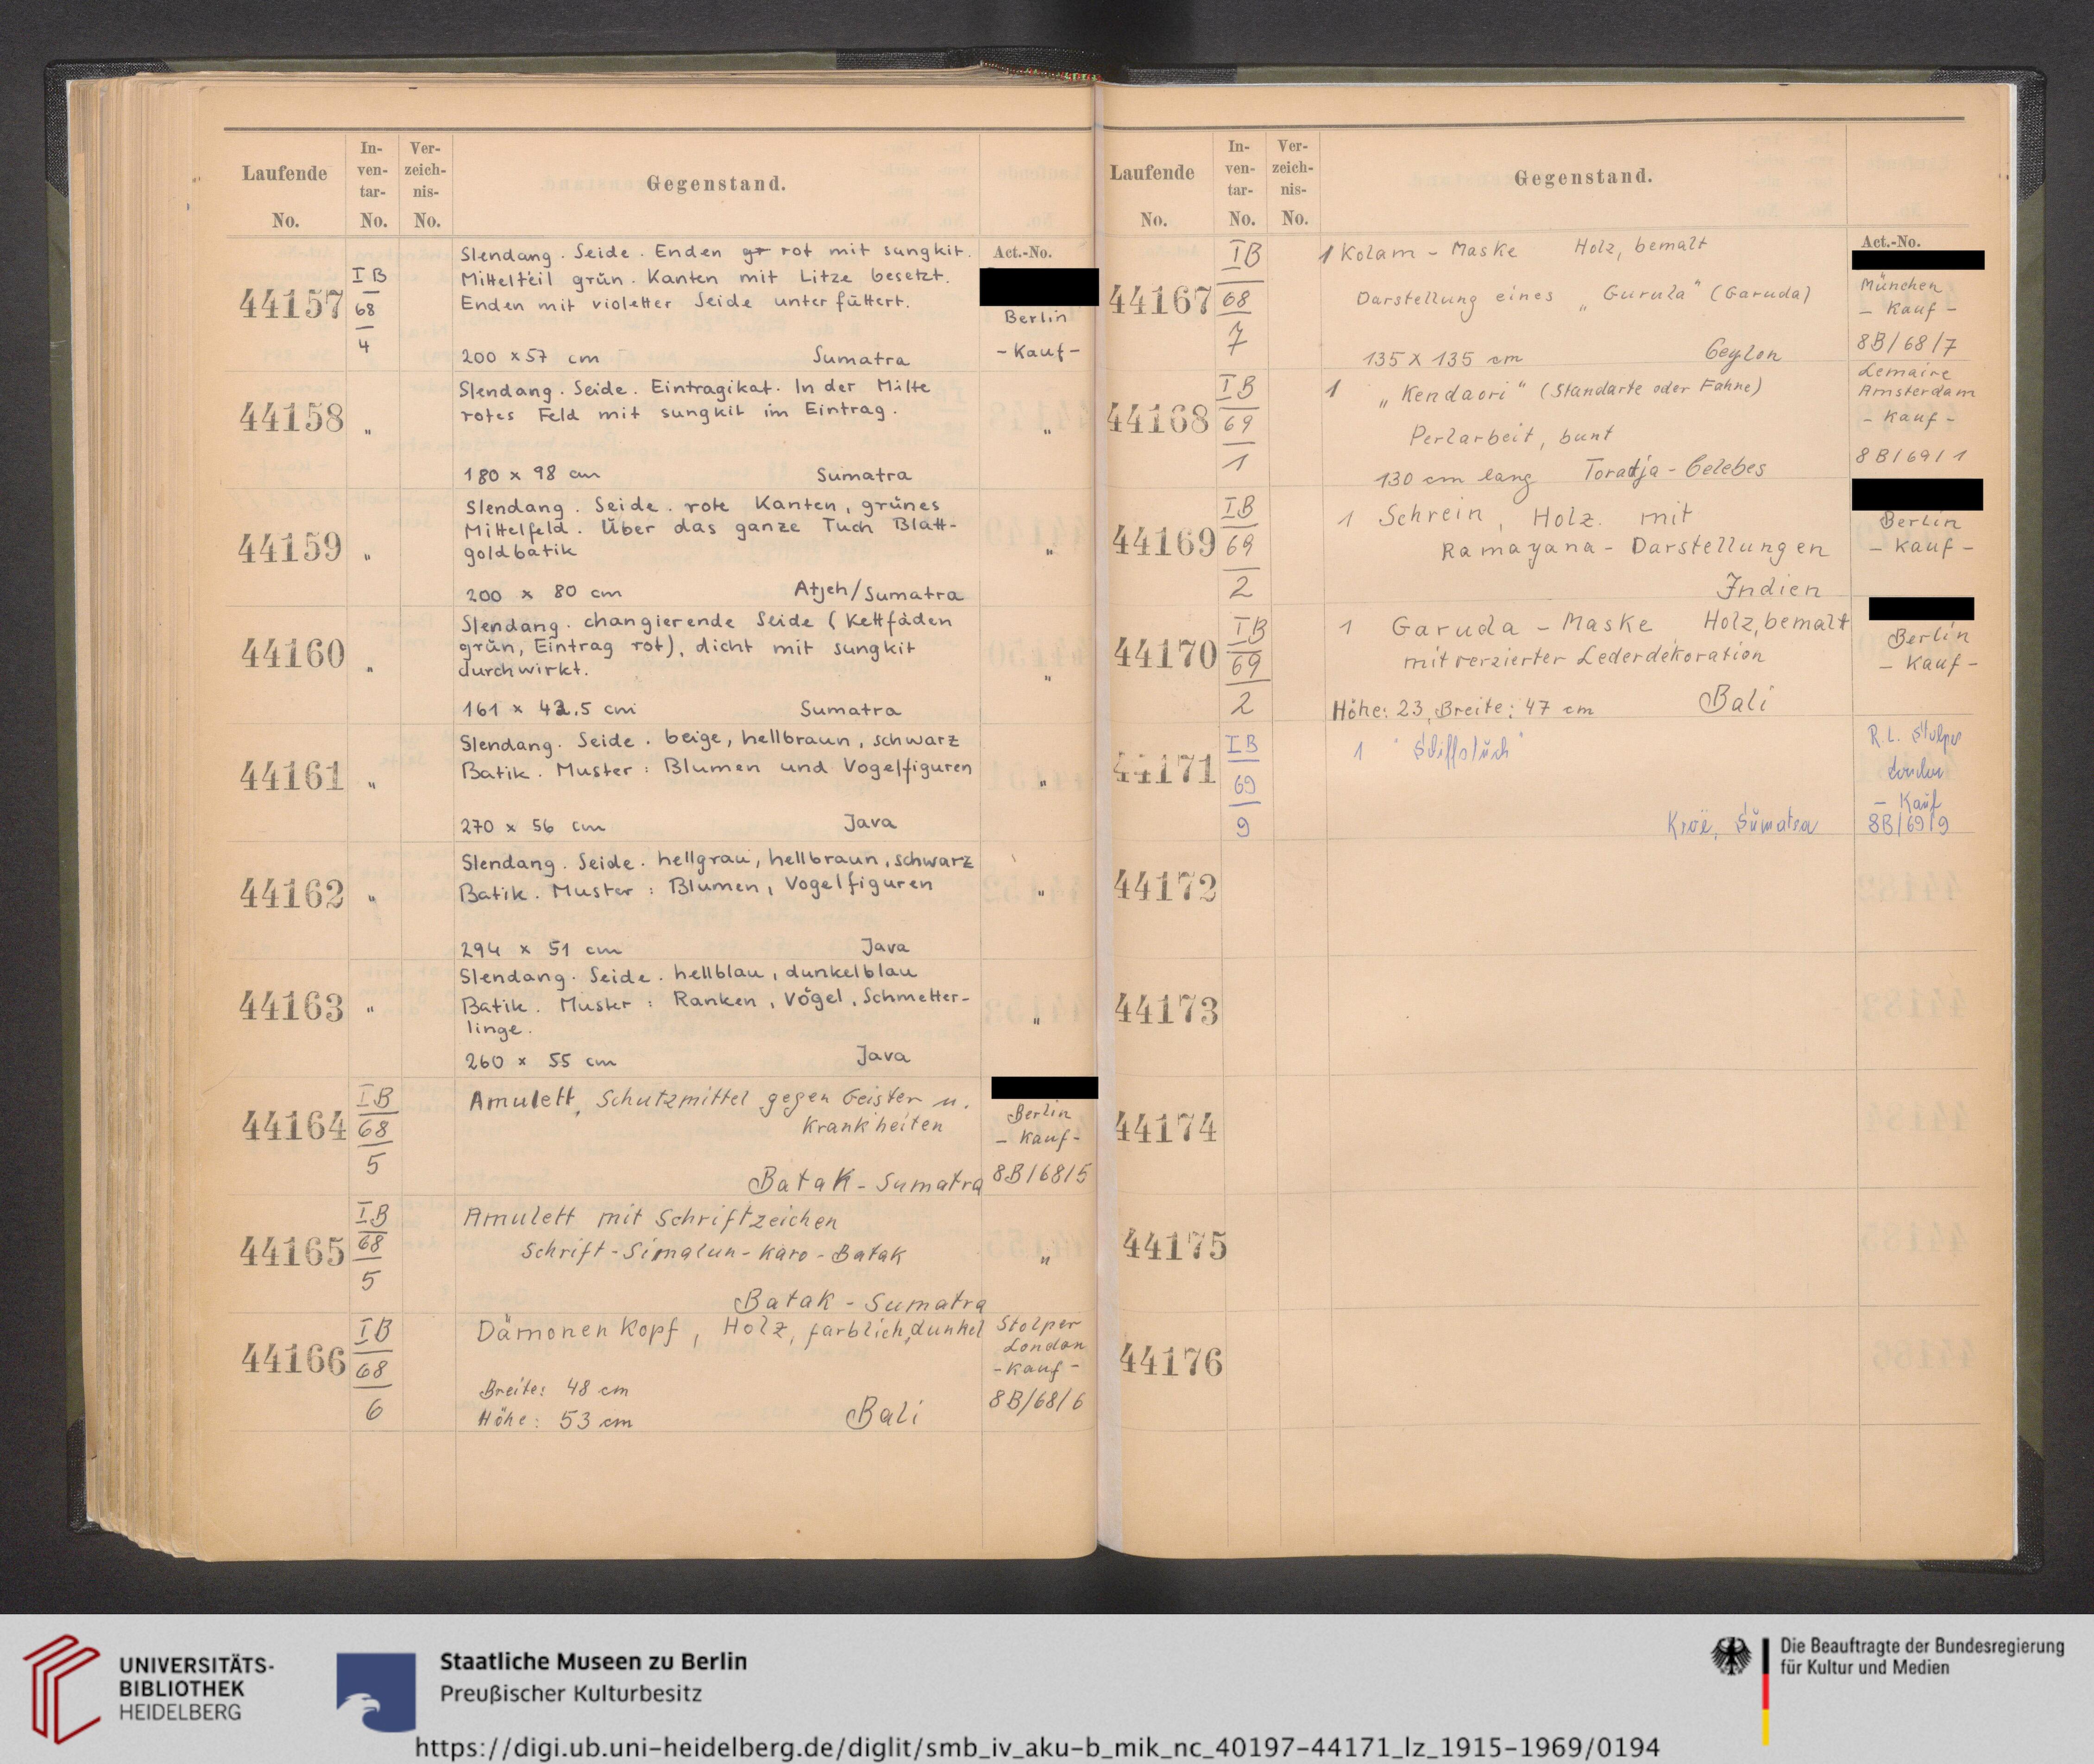 Laufende
No.
In-
ven-
tar-
No.
Ver-
zeich-
nis-
No.
Gegenstand.
Act.-No.
44157
I B
68
4
Slendang. Seide. Enden gr rot mit sungkit.
Mittelteil grün. Kanten mit Litze besetzt.
Enden mit violetter Seide unterfüttert.
200 x 57 cm Sumatra
Berlin
- Kauf -
44158
"
Slendang. Seide. Eintragikat. In der Mitte
rotes Feld mit sungkit im Eintrag.
180 x 98 cm Sumatra
"
44159
"
Slendang. Seide. rote Kanten, grünes
Mittelfeld. Über das ganze Tuch Blatt-
goldbatik
200 x 80 cm Atjeh/Sumatra
"
44160
"
Slendang. changierende Seide (Kettfäden
grün, Eintrag rot), dicht mit sungkit
durchwirkt.
161 x 42.5 cm Sumatra
"
44161
"
Slendang. Seide. beige, hellbraun, schwarz
Batik. Muster: Blumen und Vogelfiguren
270 x 56 cm Java
"
44162
"
Slendang. Seide. hellgrau, hellbraun, schwarz
Batik. Muster: Blumen, Vogelfiguren
294 x 51 cm Java
"
44163
"
Slendang. Seide. hellblau, dunkelblau
Batik. Muster: Ranken, Vögel, Schmetter-
linge.
260 x 55 cm Java
"
44164
I B
68
5
Amulett, Schutzmittel gegen Geister u.
Krankheiten
Batak - Sumatra
Berlin
- Kauf -
8B/68/5
44165
I B
68
5
Amulett mit Schriftzeichen
Schrift - Simalun - Karo - Batak
Batak - Sumatra
"
44166
I B
68
6
Dämonenkopf, Holz, farblich, dunkel
Breite: 48 cm
Höhe: 53 cm Bali
Stolper
London
- Kauf -
8B/68/6
Laufende
No.
In-
ven-
tar-
No.
Ver-
zeich-
nis-
No.
Gegenstand.
Act.-No.
44167
I B
68
7
1 Kolam - Maske Holz, bemalt
Darstellung eines „Gurula" (Garuda)
135 x 135 cm Ceylon
München
- Kauf -
8B/68/7
44168
I B
69
1
1 „Kendaori" (Standarte oder Fahne)
Perlarbeit, bunt
130 cm lang Toradja - Celebes
Lemaire
Amsterdam
- Kauf -
8B/69/1
44169
I B
69
2
1 Schrein, Holz. mit
Ramayana - Darstellungen
Indien
Berlin
- Kauf -
44170
I B
69
2
1 Garuda - Maske Holz, bemalt
mit verzierter Lederdekoration
Höhe: 23, Breite: 47 cm Bali
Berlin
- Kauf -
44171
I B
69
9
1 "Schiffstuch"
Kroë, Sumatra
R.L. Stolper
London
- Kauf
8B/69/9
44172
44173
44174
44175
44176
UNIVERSITÄTS-
BIBLIOTHEK
HEIDELBERG
Staatliche Museen zu Berlin
Preußischer Kulturbesitz
Die Beauftragte der Bundesregierung
für Kultur und Medien
https://digi.ub.uni-heidelberg.de/diglit/smb_iv_aku-b_mik_nc_40197-44171_lz_1915-1969/0194